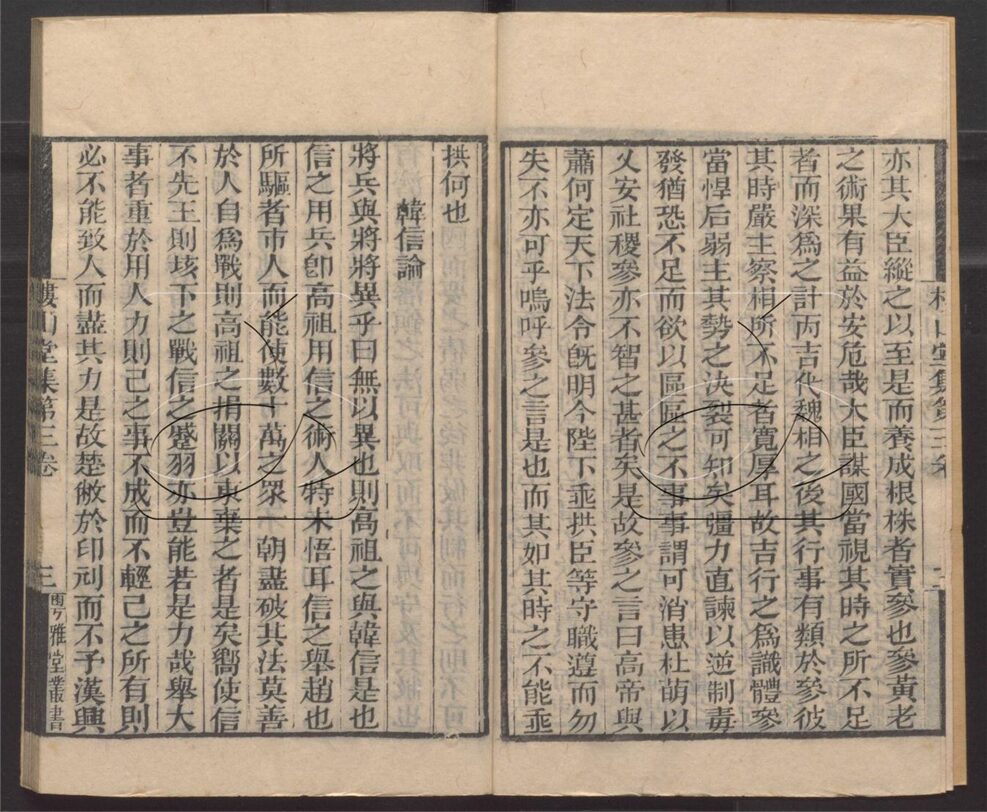 亦其大臣縱之以至是而養成根株者實參也參黃老
之術果有益於安危哉大臣謀國當視其時之所不足
者而深爲之計丙吉代魏相之後其行事有類於參彼
其時嚴主察相所不足者寬厚耳故吉行之爲識體參
當悍后弱主其勢之決裂可知矣彊力直諫以逆制毒
發猶恐不足而欲以區區之不事事謂可消患杜萌以
乂安社稷參亦不智之甚者矣是故參之言曰高帝與
蕭何定天下法令旣明今陛下垂拱臣等守職遵而勿
失不亦可乎嗚呼參之言是也而其如其時之不能垂
拱何也
韓信論
將兵與將將異乎曰無以異也則高祖之與韓信是也
信之用兵卽高祖用信之術人特未悟耳信之舉趙也
所驅者市人而能使數十萬之眾一朝盡破其法莫善
於人自爲戰則高祖之捐關以東棄之者是矣嚮使信
不先王則垓下之戰信之蹙羽亦豈能若是力哉舉大
事者重於用人力則己之事不成而不輕己之所有則
必不能致人而盡其力是故楚敝於印刓而不予漢興
樓山堂集第三卷
三
粵雅堂叢書